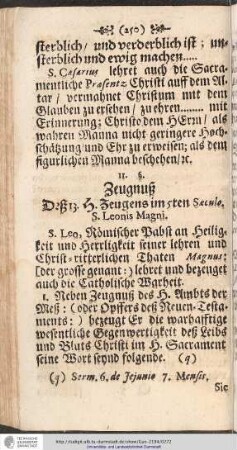 (250)
sterblich/ und verderblich ist; un-
sterblich und ewig machen.....
S. Cæsarius lehret auch die Sacra-
mentliche Præsentz Christi auff dem Al-
tar/ vermahnet Christum mit dem
Glauben zu ersehen/ zu ehren........ mit
Erinnerung; Christo dem HErn/ als
wahren Manna nicht geringere Hoch-
schätzung und Ehr zu erweisen; als dem
figurlichen Manna beschehen/ ꝛc.
II. §.
Zeugnuß
Deß 13. H. Zeugens im 5ten Sæculo,
S. Leonis Magni.
S. Leo, Römischer Pabst an Heilig-
keit und Herrligkeit seiner lehren und
Christ-ritterlichen Thaten Magnus;
[der grosse genant:) lehret und bezeuget
auch die Catholische Warheit.
1. Neben Zeugnuß des H. Ambts der
Meß: (oder Opffers deß Neuen-Testa-
ments:) bezeugt Er die warhafftige
wesentliche Gegenwertigkeit deß Leibs
und Bluts Christi im H. Sacrament
seine Wort seynd folgende. (q)
(q) Serm. 6. de Jejunio 7. Mensis.
Sic